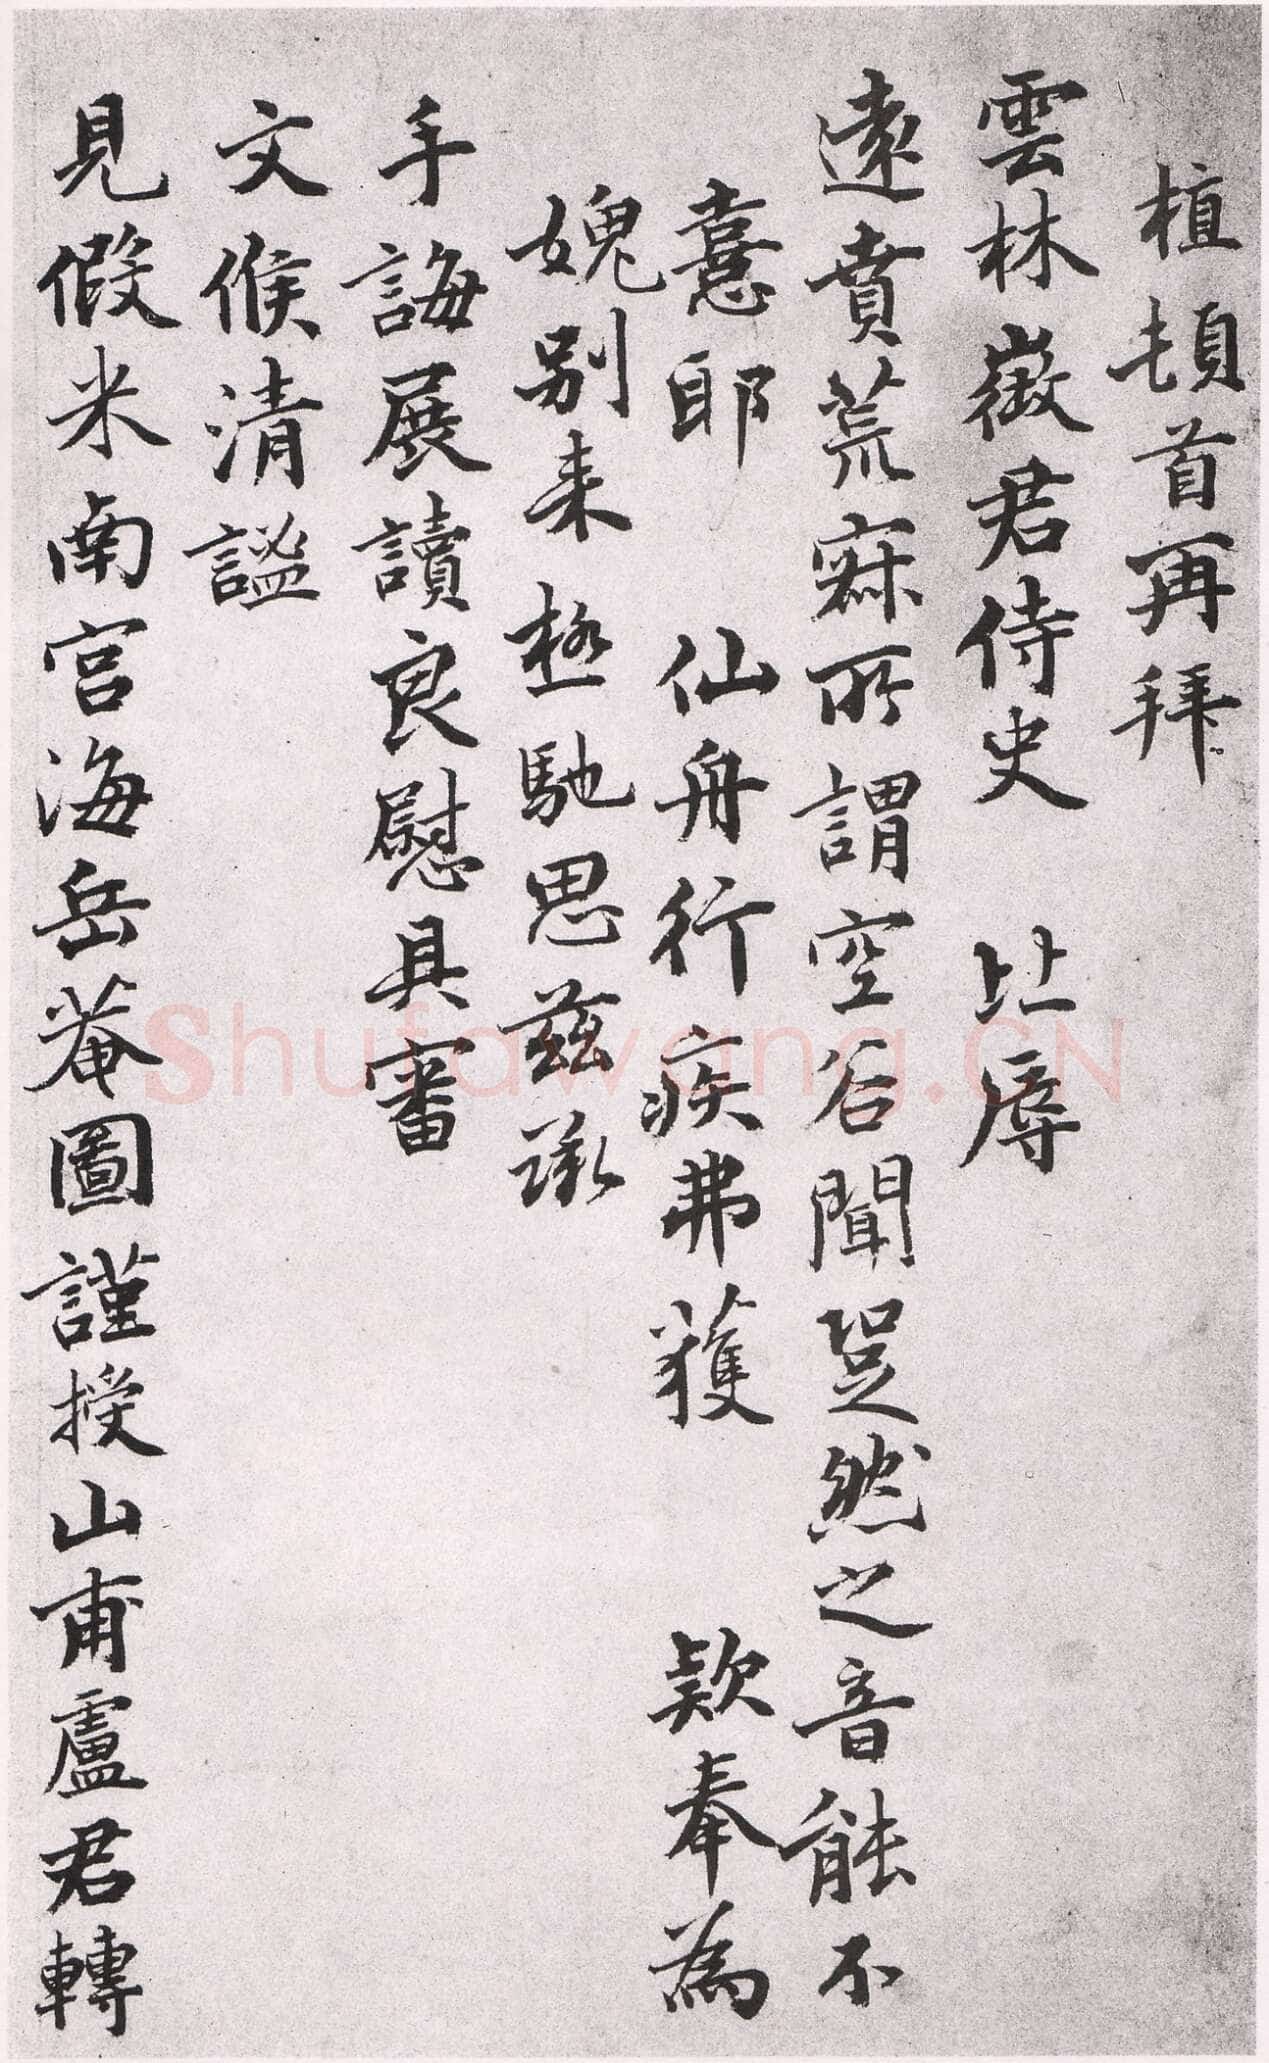 植頓首再拜
雲林徵君侍史 比辱
遠賁荒寂所謂空谷聞跫然之音能不
憙耶 仙舟行疾弗獲 款奉為
媿別來極馳思茲承
手誨展讀良慰具審
文候清謐
見假米南宮海岳菴圖謹授山甫盧君轉
Shufawang.CN